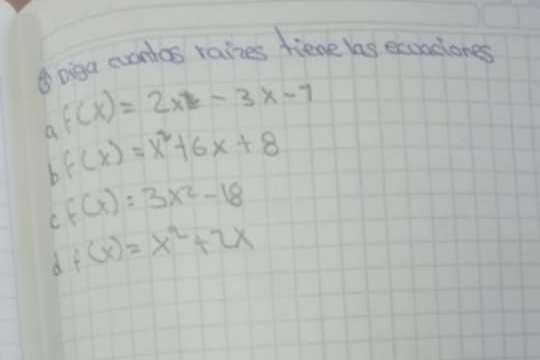 ⑧ Diga cuantos raizes tiene las ecuaciones
a f(x) = 2x² - 3x - 7
b f(x) = x² + 6x + 8
c f(x) = 3x² - 18
d f(x) = x² + 2x